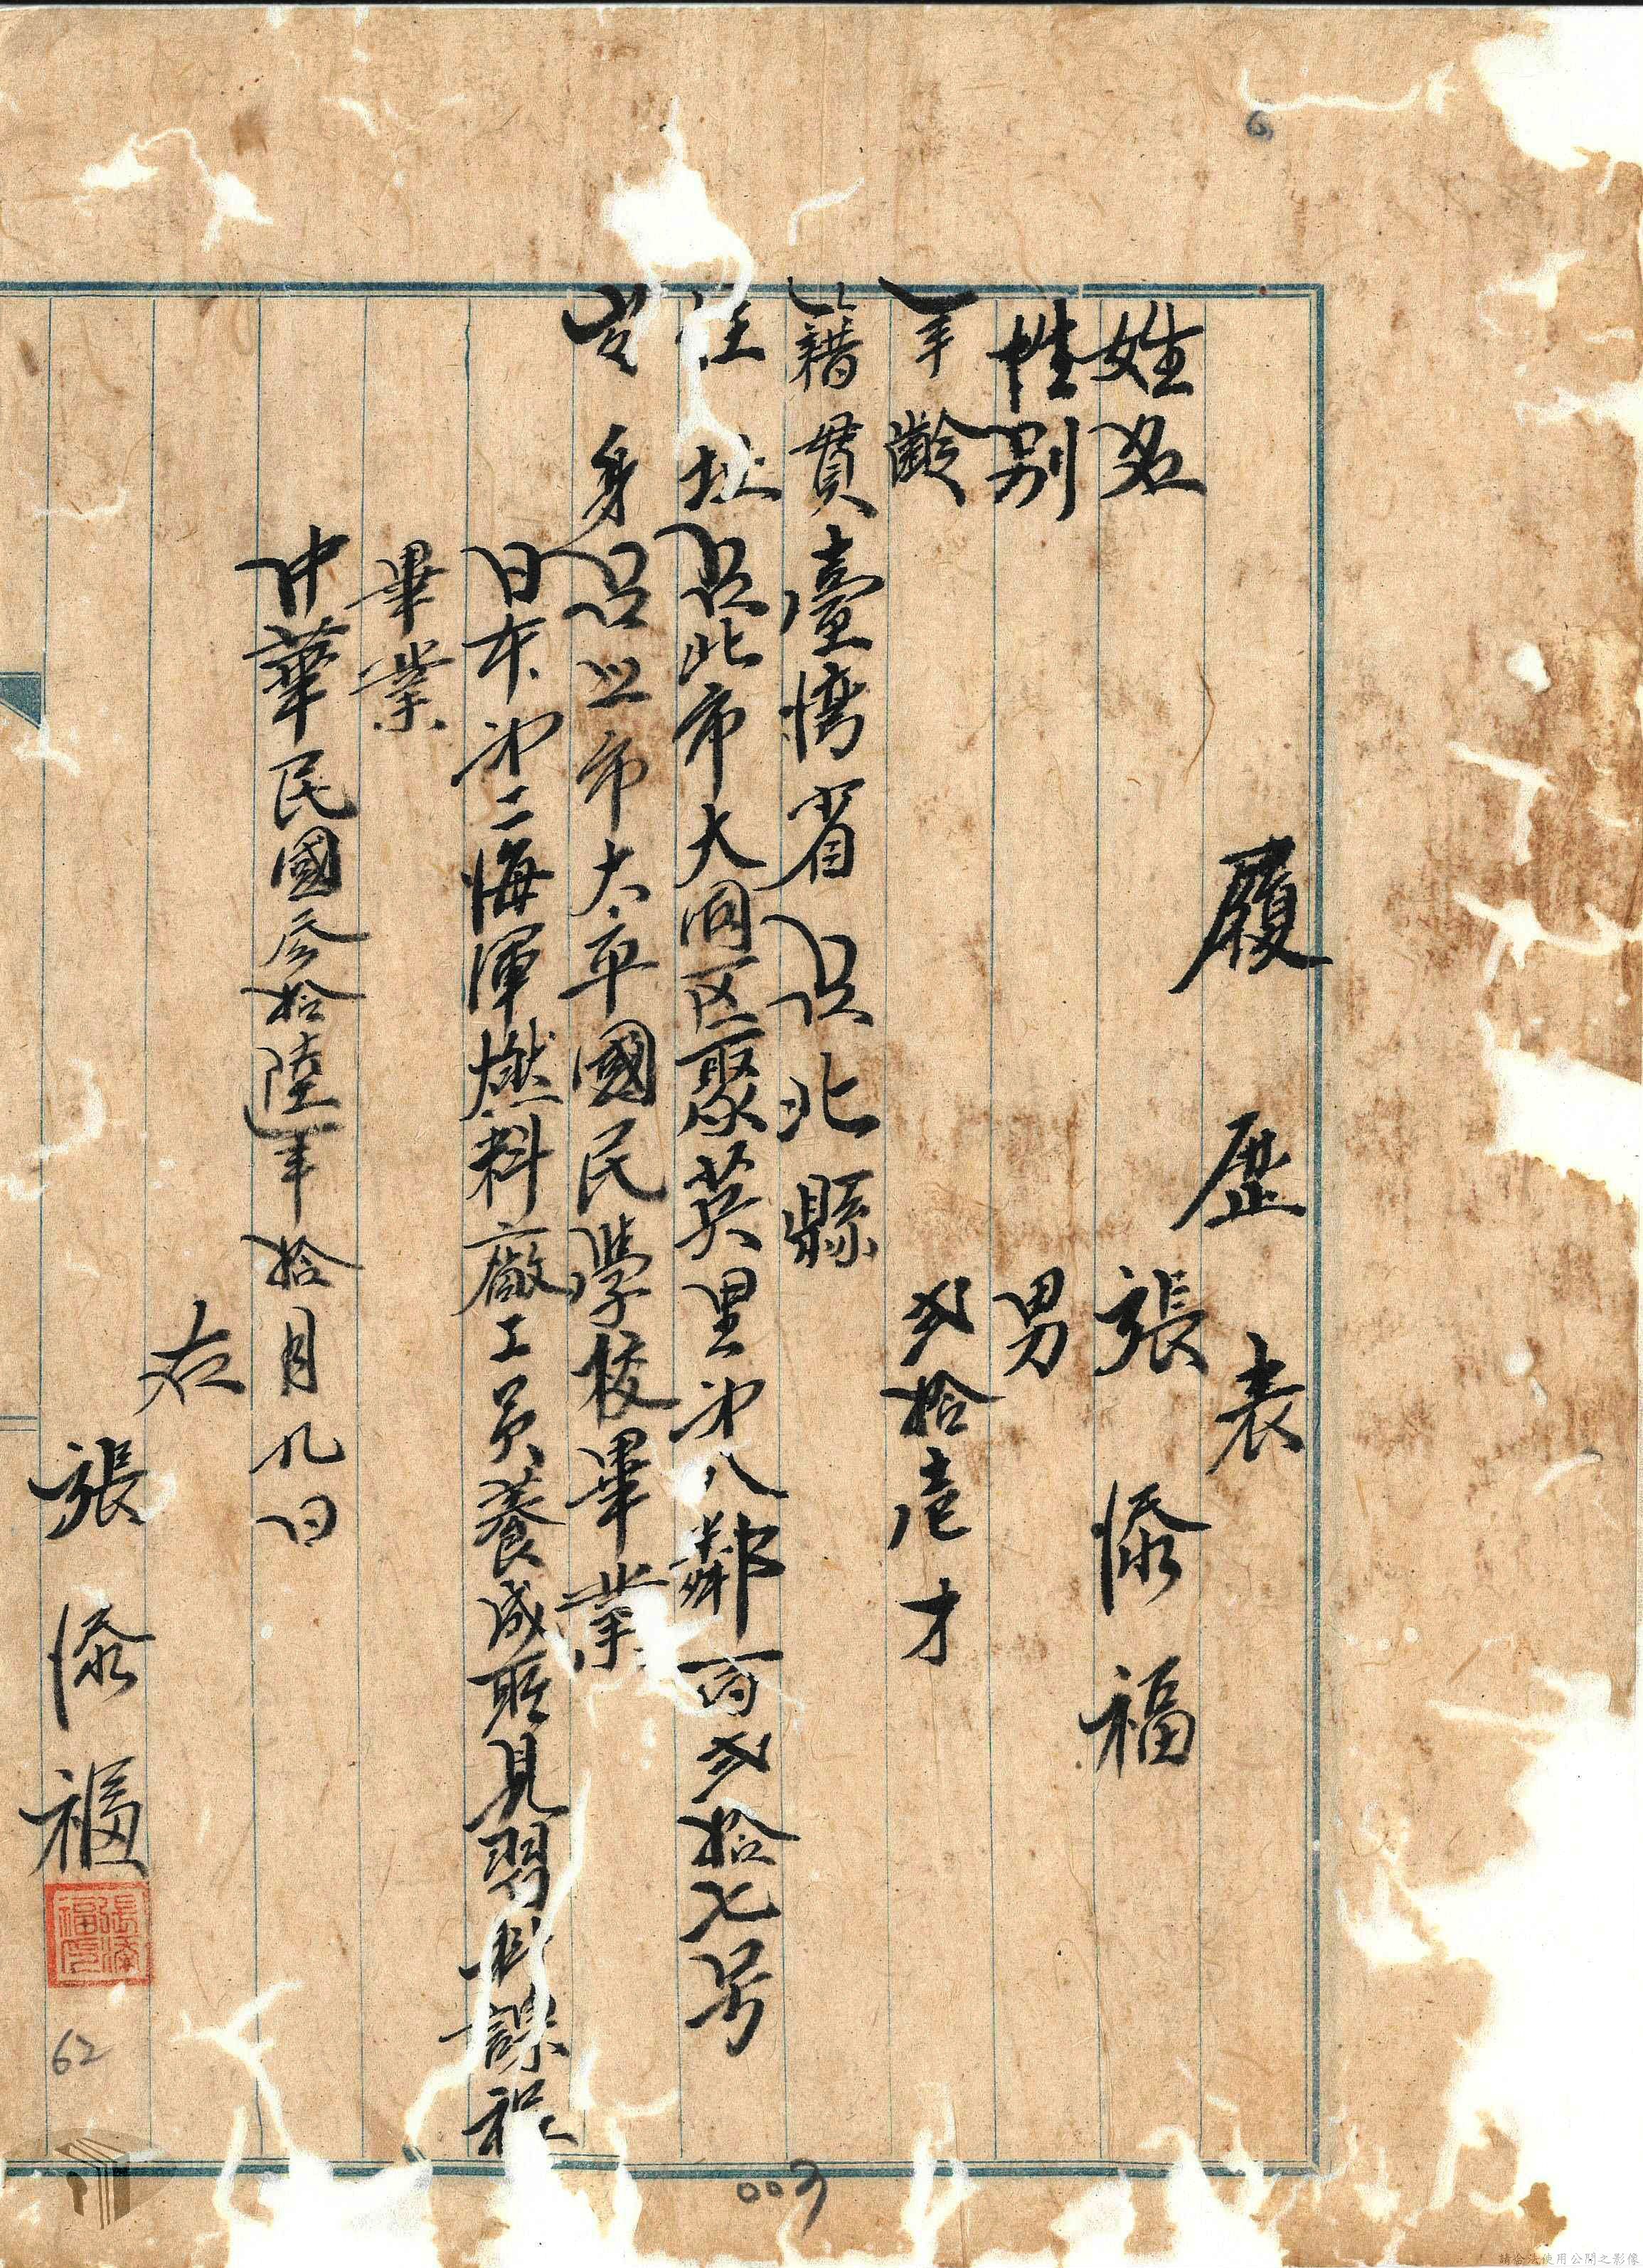 履歷表
姓名 張添福
性別 男
年齡 弍拾壱才
籍貫 臺湾省台北縣
住址 台北市大同区聚英里第八鄰百弍拾七号
出身 台北市太平國民學校畢業
日本第二海軍燃料廠工員養成所見習科課程
畢業
中華民國参拾陸年拾月九日
右
張添福
張添福印
62
6
請合法使用公開之影像